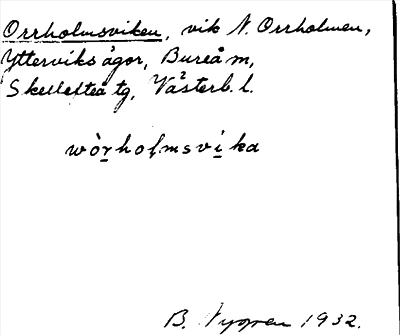 Orrholmsviken, vik N. Orrholmen,
Ytterviks ågor, Bureå m,
Skellefteå tg, Västerb. l.
wòr̲hoḷmsvi̲ka
B. Nygren 1932.